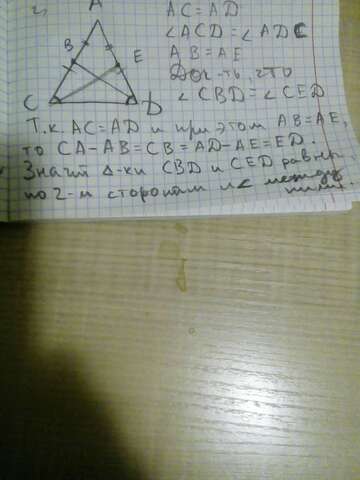 2)
A
B
E
C
D
AC=AD
∠ACD=∠ADC
AB=AE
Док-ть, что
∠CBD=∠CED
Т.к. AC=AD и при этом AB=AE,
то CA-AB=CB=AD-AE=ED.
Значит Δ-ки CBD и CED равны
по 2-м сторонам и ∠ между
ними.